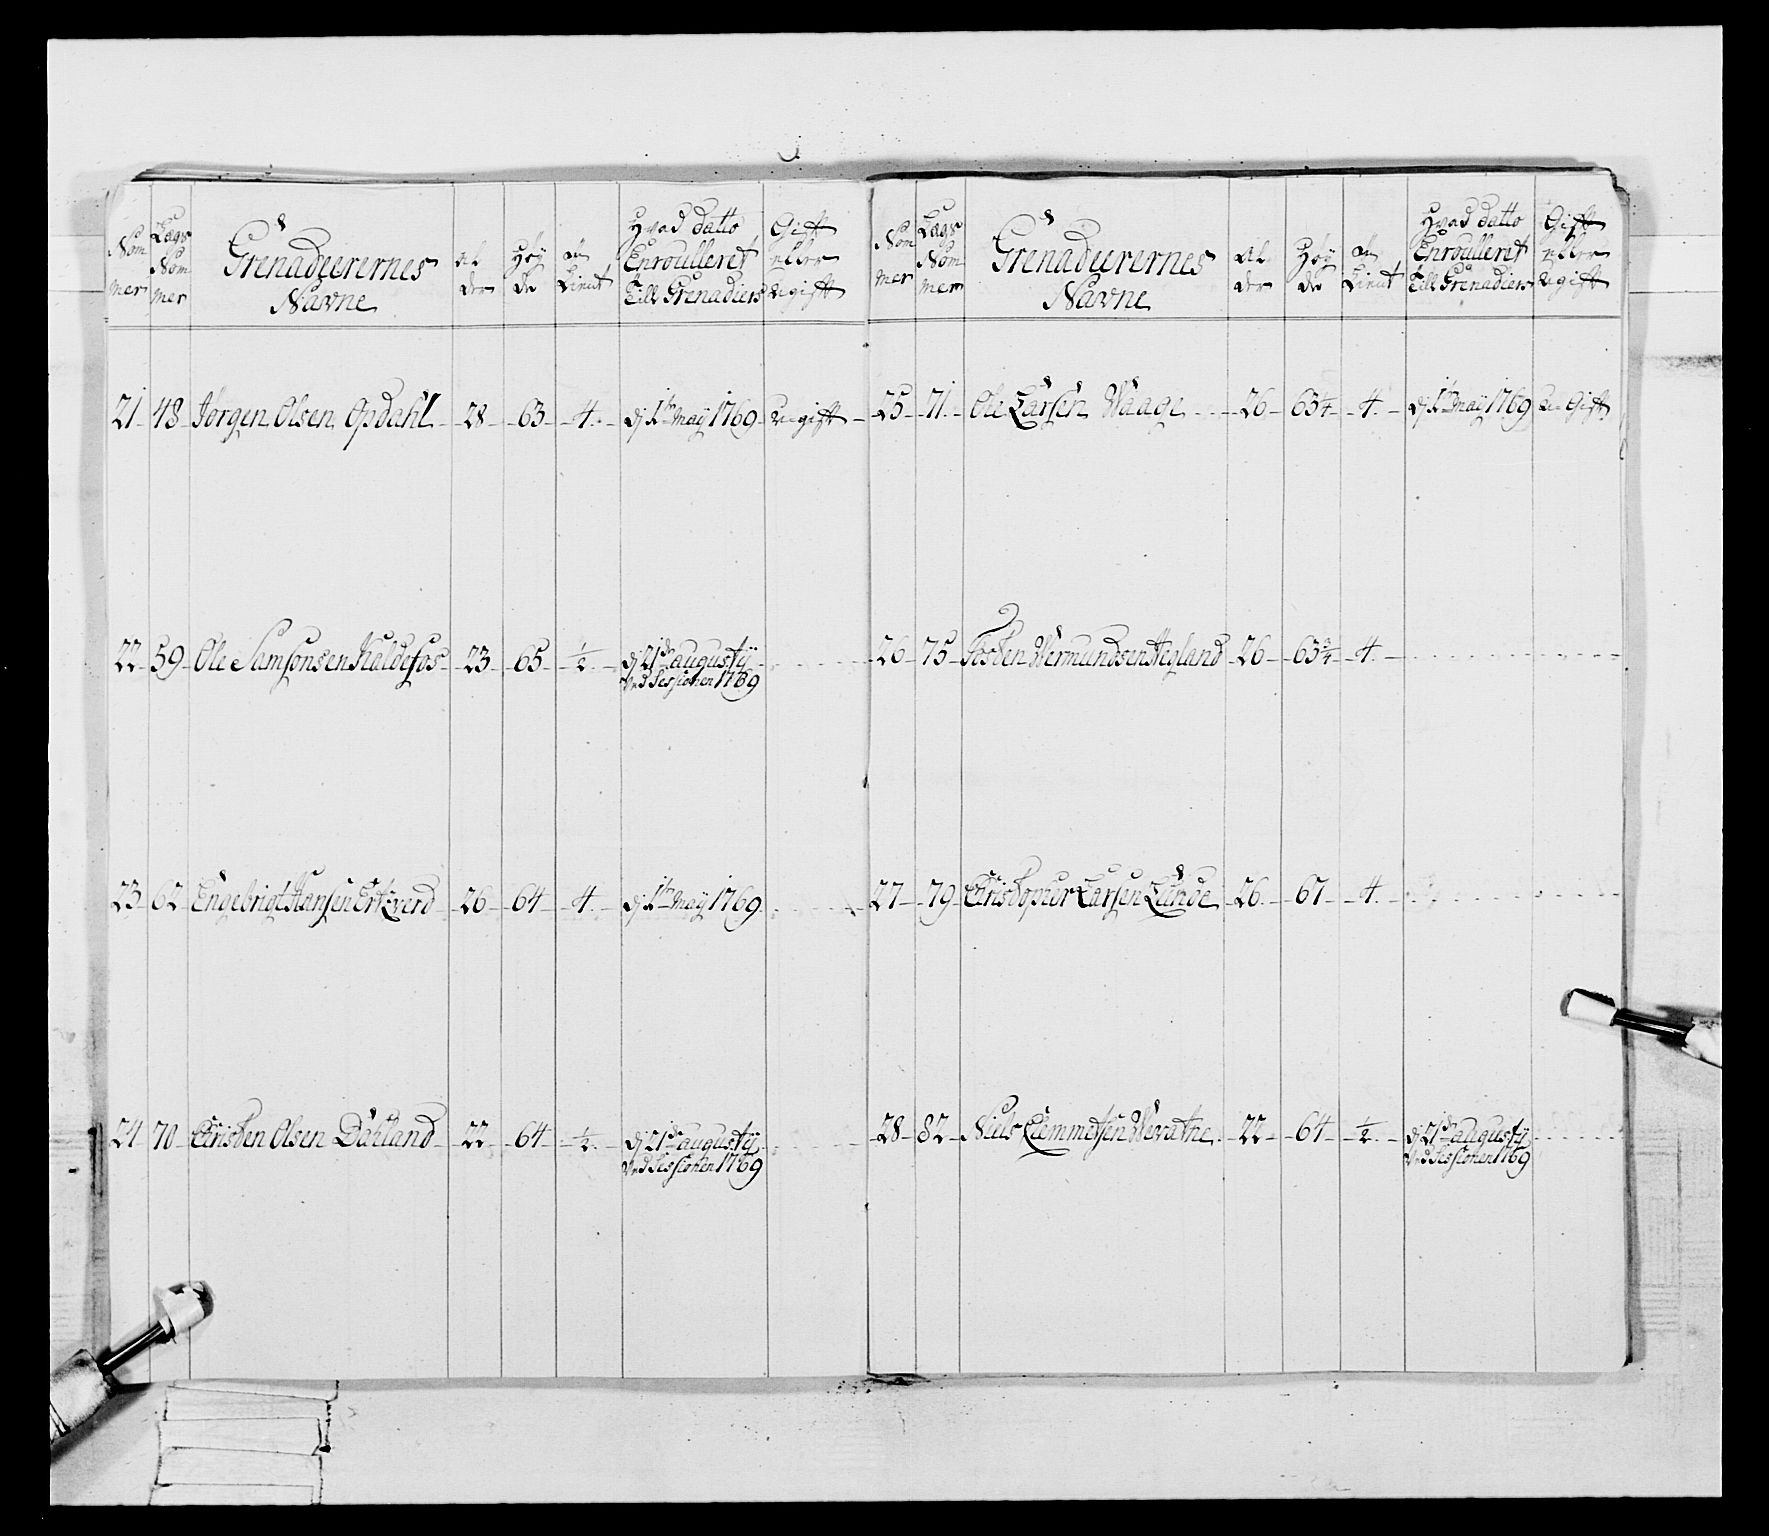 Nom mer | Lægs Nom mer | Grenadeerernes Navne | Al der | Høy de | an Tient | Hvad datto Enroulleret Till Grenadiers | Gift eller Ugift
21 | 48 | Jørgen Olsen Opdahl | 28 | 63 | 4 | dj 1te May 1769 | Ugift
22 | 59 | Ole Samsonsen Haldefos | 23 | 65 | ½ | dj 21de augusty
ved Sessionen 1769
23 | 62 | Engebrigt Hansen | 26 | 64 | 4 | dj 1te May 1769
24 | 70 | Christen Olsen Dahland | 22 | 64 | ½ | dj 21de augusty
ved Sessionen 1769
Nom mer | Lægs Nom mer | Grenadeerernes Navne | Al der | Høy de | an Tient | Hvad datto Enroulleret Till Grenadiers | Gift eller Ugift
25 | 71 | Ole Larsen Waage | 26 | 63¼ | 4 | dj 1te May 1769 | U Gift
26 | 75 | Tosten Wermundsen Hegland | 26 | 63¾ | 4
27 | 79 | Christopher Larsen Lunde | 26 | 67 | 4
28 | 82 | Niels Clemmetsen | 22 | 64 | ½ | dj 21de augusty
ved Sessionen 1769